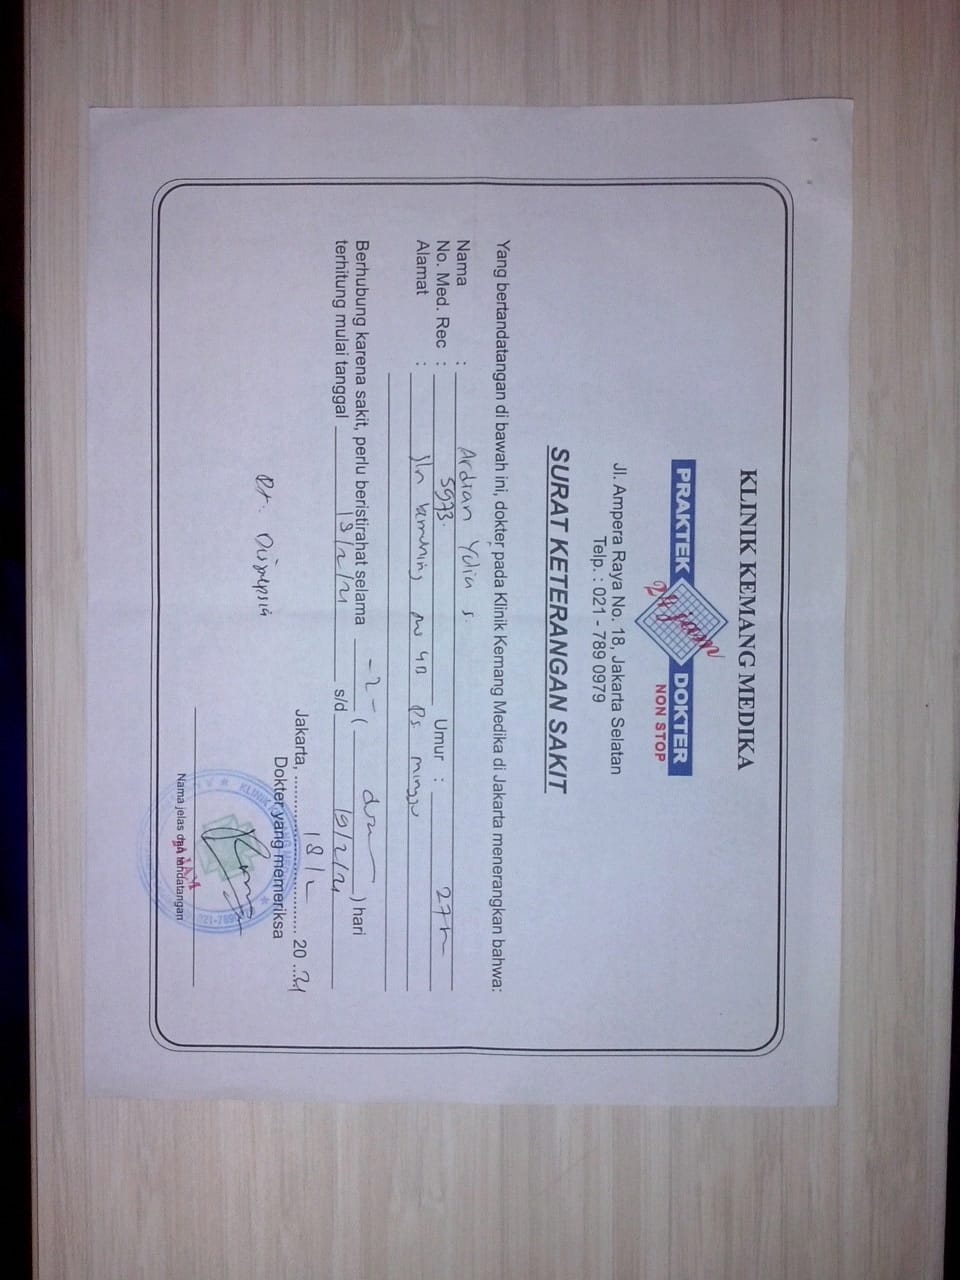 KLINIK KEMANG MEDIKA
PRAKTEK 24 jam DOKTER
NON STOP
Jl. Ampera Raya No. 18, Jakarta Selatan
Telp. : 021 - 789 0979
SURAT KETERANGAN SAKIT
Yang bertandatangan di bawah ini, dokter pada Klinik Kemang Medika di Jakarta menerangkan bahwa:
Nama : Ardian Yolia S.
No. Med. Rec : 5973. Umur : 27th
Alamat : Jln no 4B Ps minggu
Berhubung karena sakit, perlu beristirahat selama - 2 - ( dua ) hari
terhitung mulai tanggal 18/2/21 s/d 19/2/21
Jakarta, 18/2 20 21
Dokter yang memeriksa
Dx. Dispepsia
KLINIK KEMANG MED
24 JAM
021-789
Nama jelas dan tandatangan